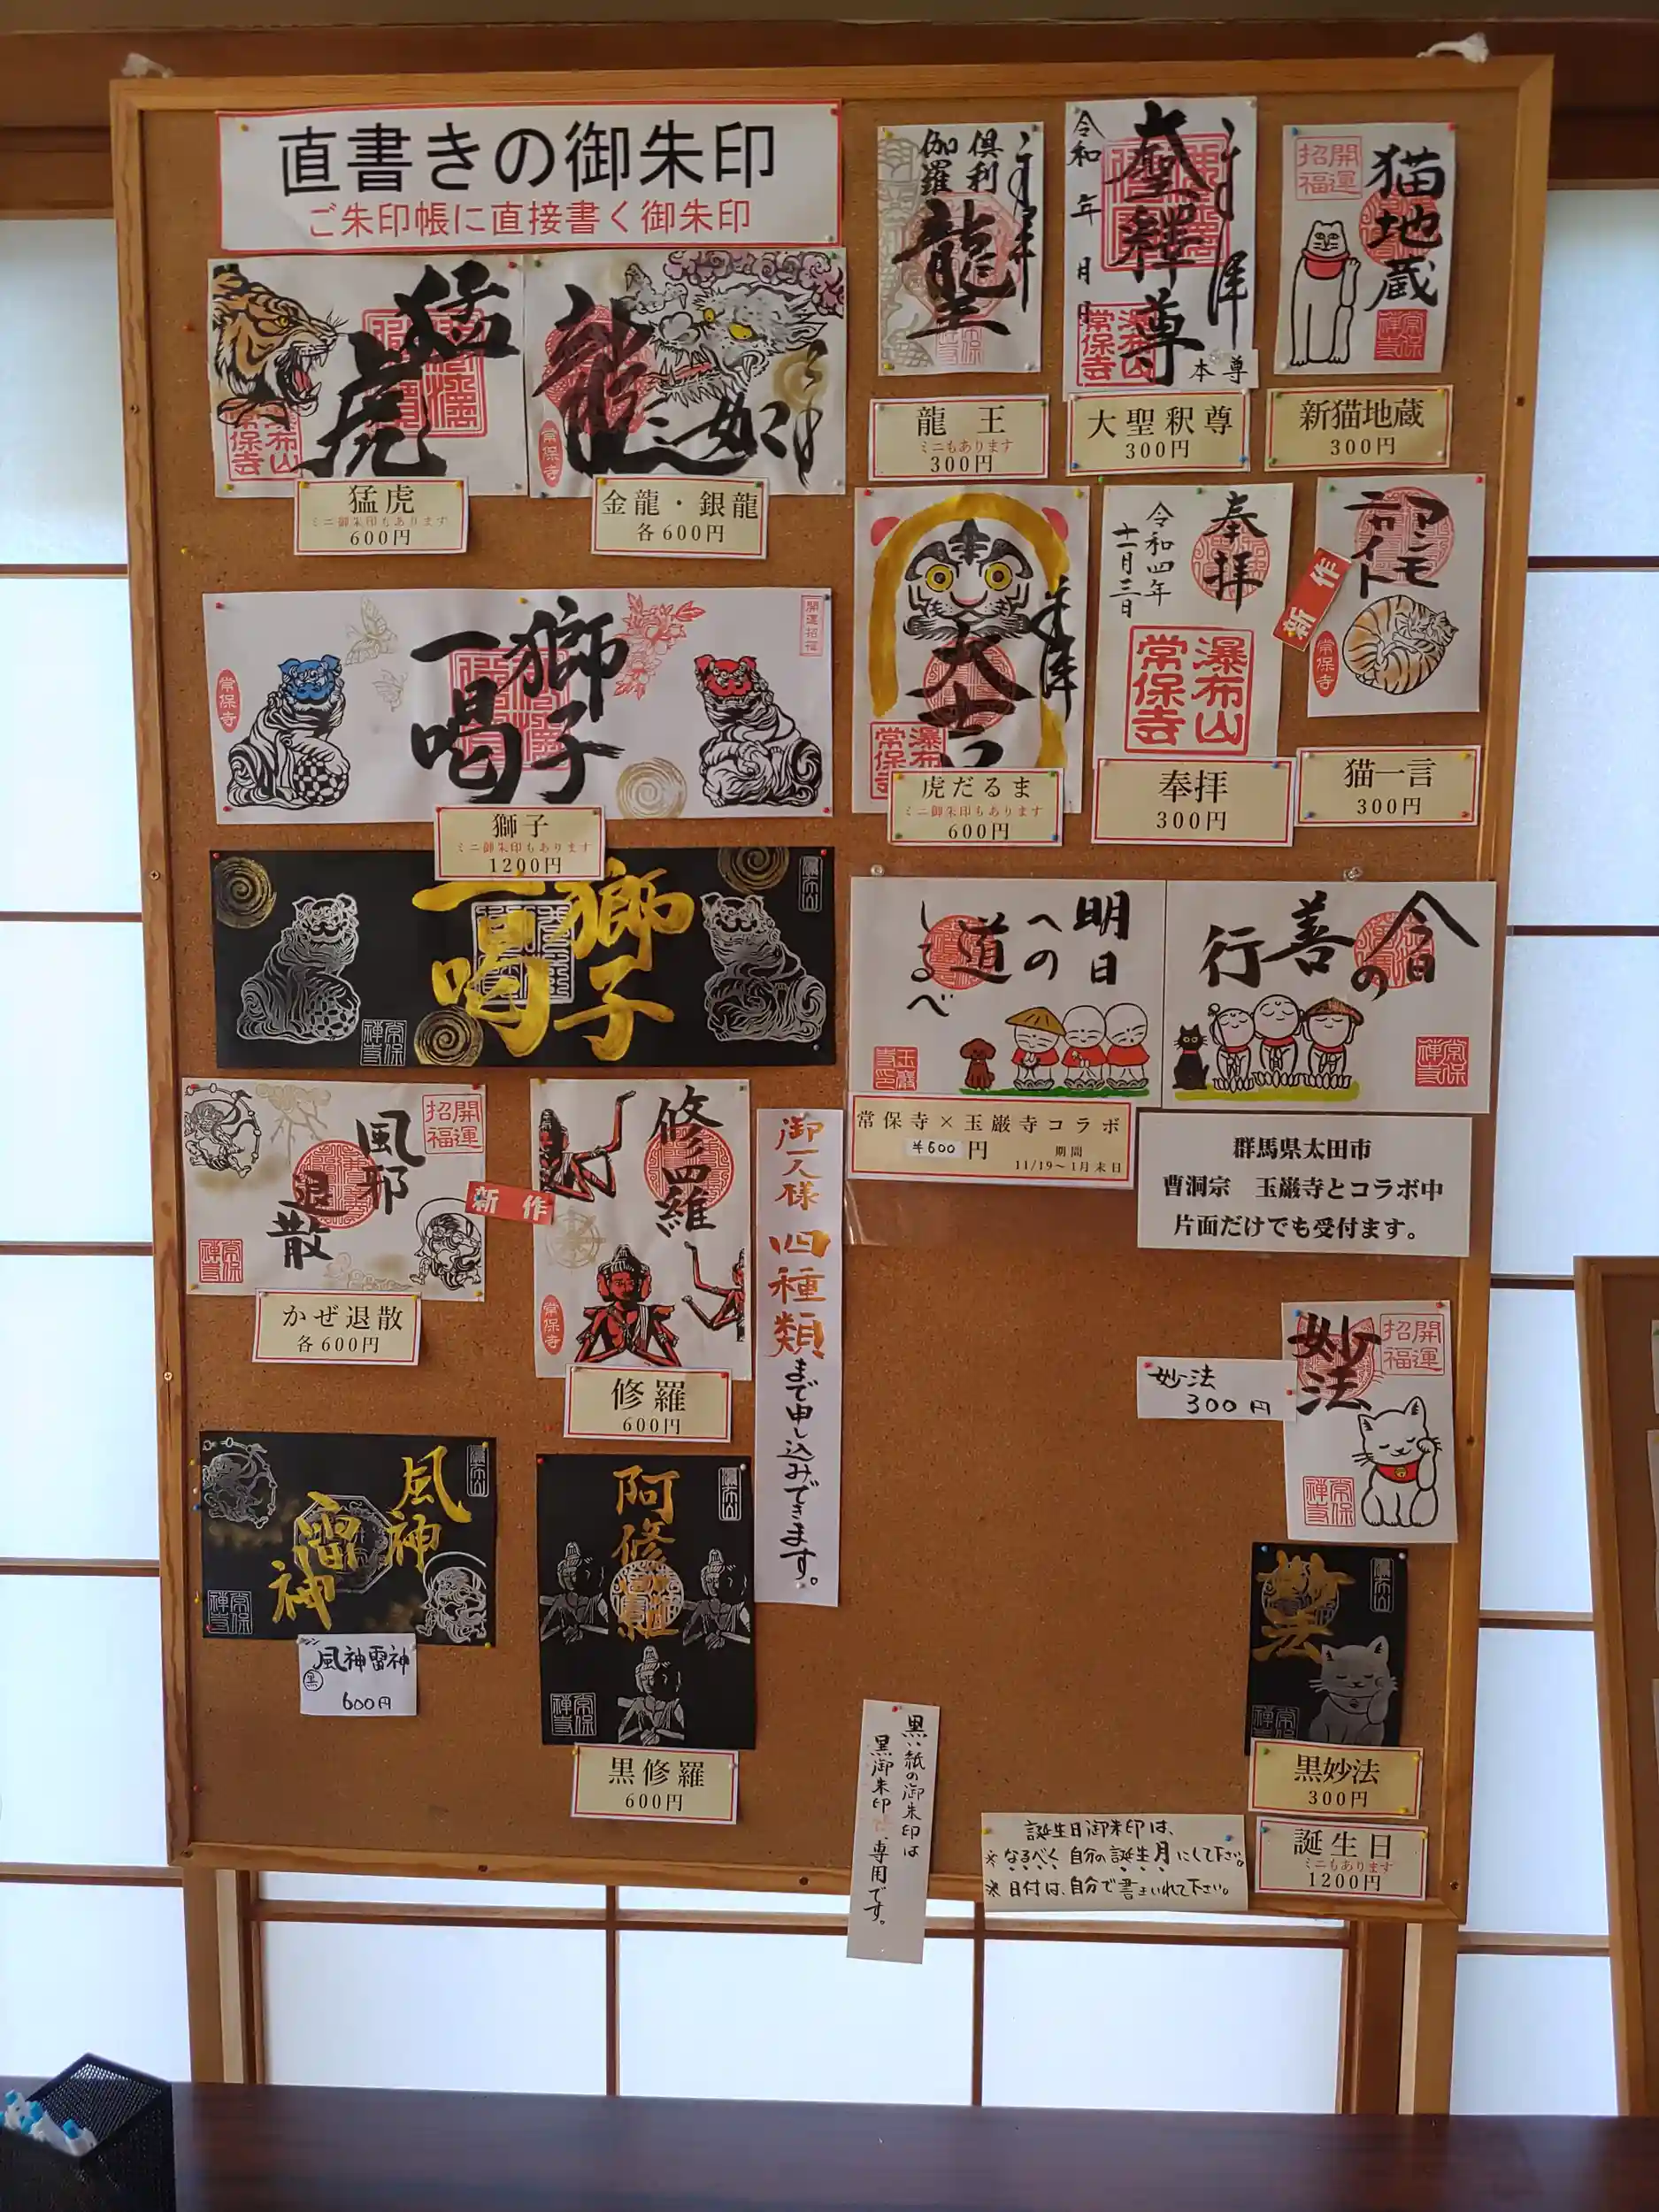 直書きの御朱印
ご朱印帳に直接書く御朱印
猛虎
瀑布山
常保寺
猛虎
ミニ御朱印もあります
600円
龍
常保寺
金龍・銀龍
各600円
倶利
伽羅
龍王
龍王
ミニもあります
300円
奉拝
大聖釋尊
令和 年 月 日
瀑布山
常保寺
本尊
大聖釈尊
300円
開運
招福
猫地蔵
常保
禅寺
新猫地蔵
300円
獅子
一喝
開運招福
常保寺
獅子
ミニ御朱印もあります
1200円
獅子
一喝
常保
禅寺
大吉
瀑布山
常保寺
虎だるま
ミニ御朱印もあります
600円
奉拝
令和四年
十一月三日
瀑布山
常保寺
奉拝
300円
ニャイト
新作
常保寺
猫一言
300円
明日
への
道
しるべ
玉巌
寺印
今日
の
善
行
常保
禅寺
常保寺×玉巌寺コラボ
¥600円
期間
11/19~1月末日
群馬県太田市
曹洞宗 玉巌寺とコラボ中
片面だけでも受付ます。
開運
招福
風邪
退散
常保
禅寺
新作
かぜ退散
各600円
修羅
常保寺
修羅
600円
御一人様 四種類まで申し込みできます。
風神
雷神
常保
禅寺
風神雷神
黒
600円
阿修羅
常保
禅寺
黒修羅
600円
妙法
開運
招福
常保
禅寺
妙法
300円
妙法
常保
禅寺
黒妙法
300円
黒い紙の御朱印は
黒御朱印 専用です。
誕生日御朱印は、
※なるべく自分の誕生月にして下さい。
※日付は、自分で書きいれて下さい。
誕生日
ミニもあります
1200円